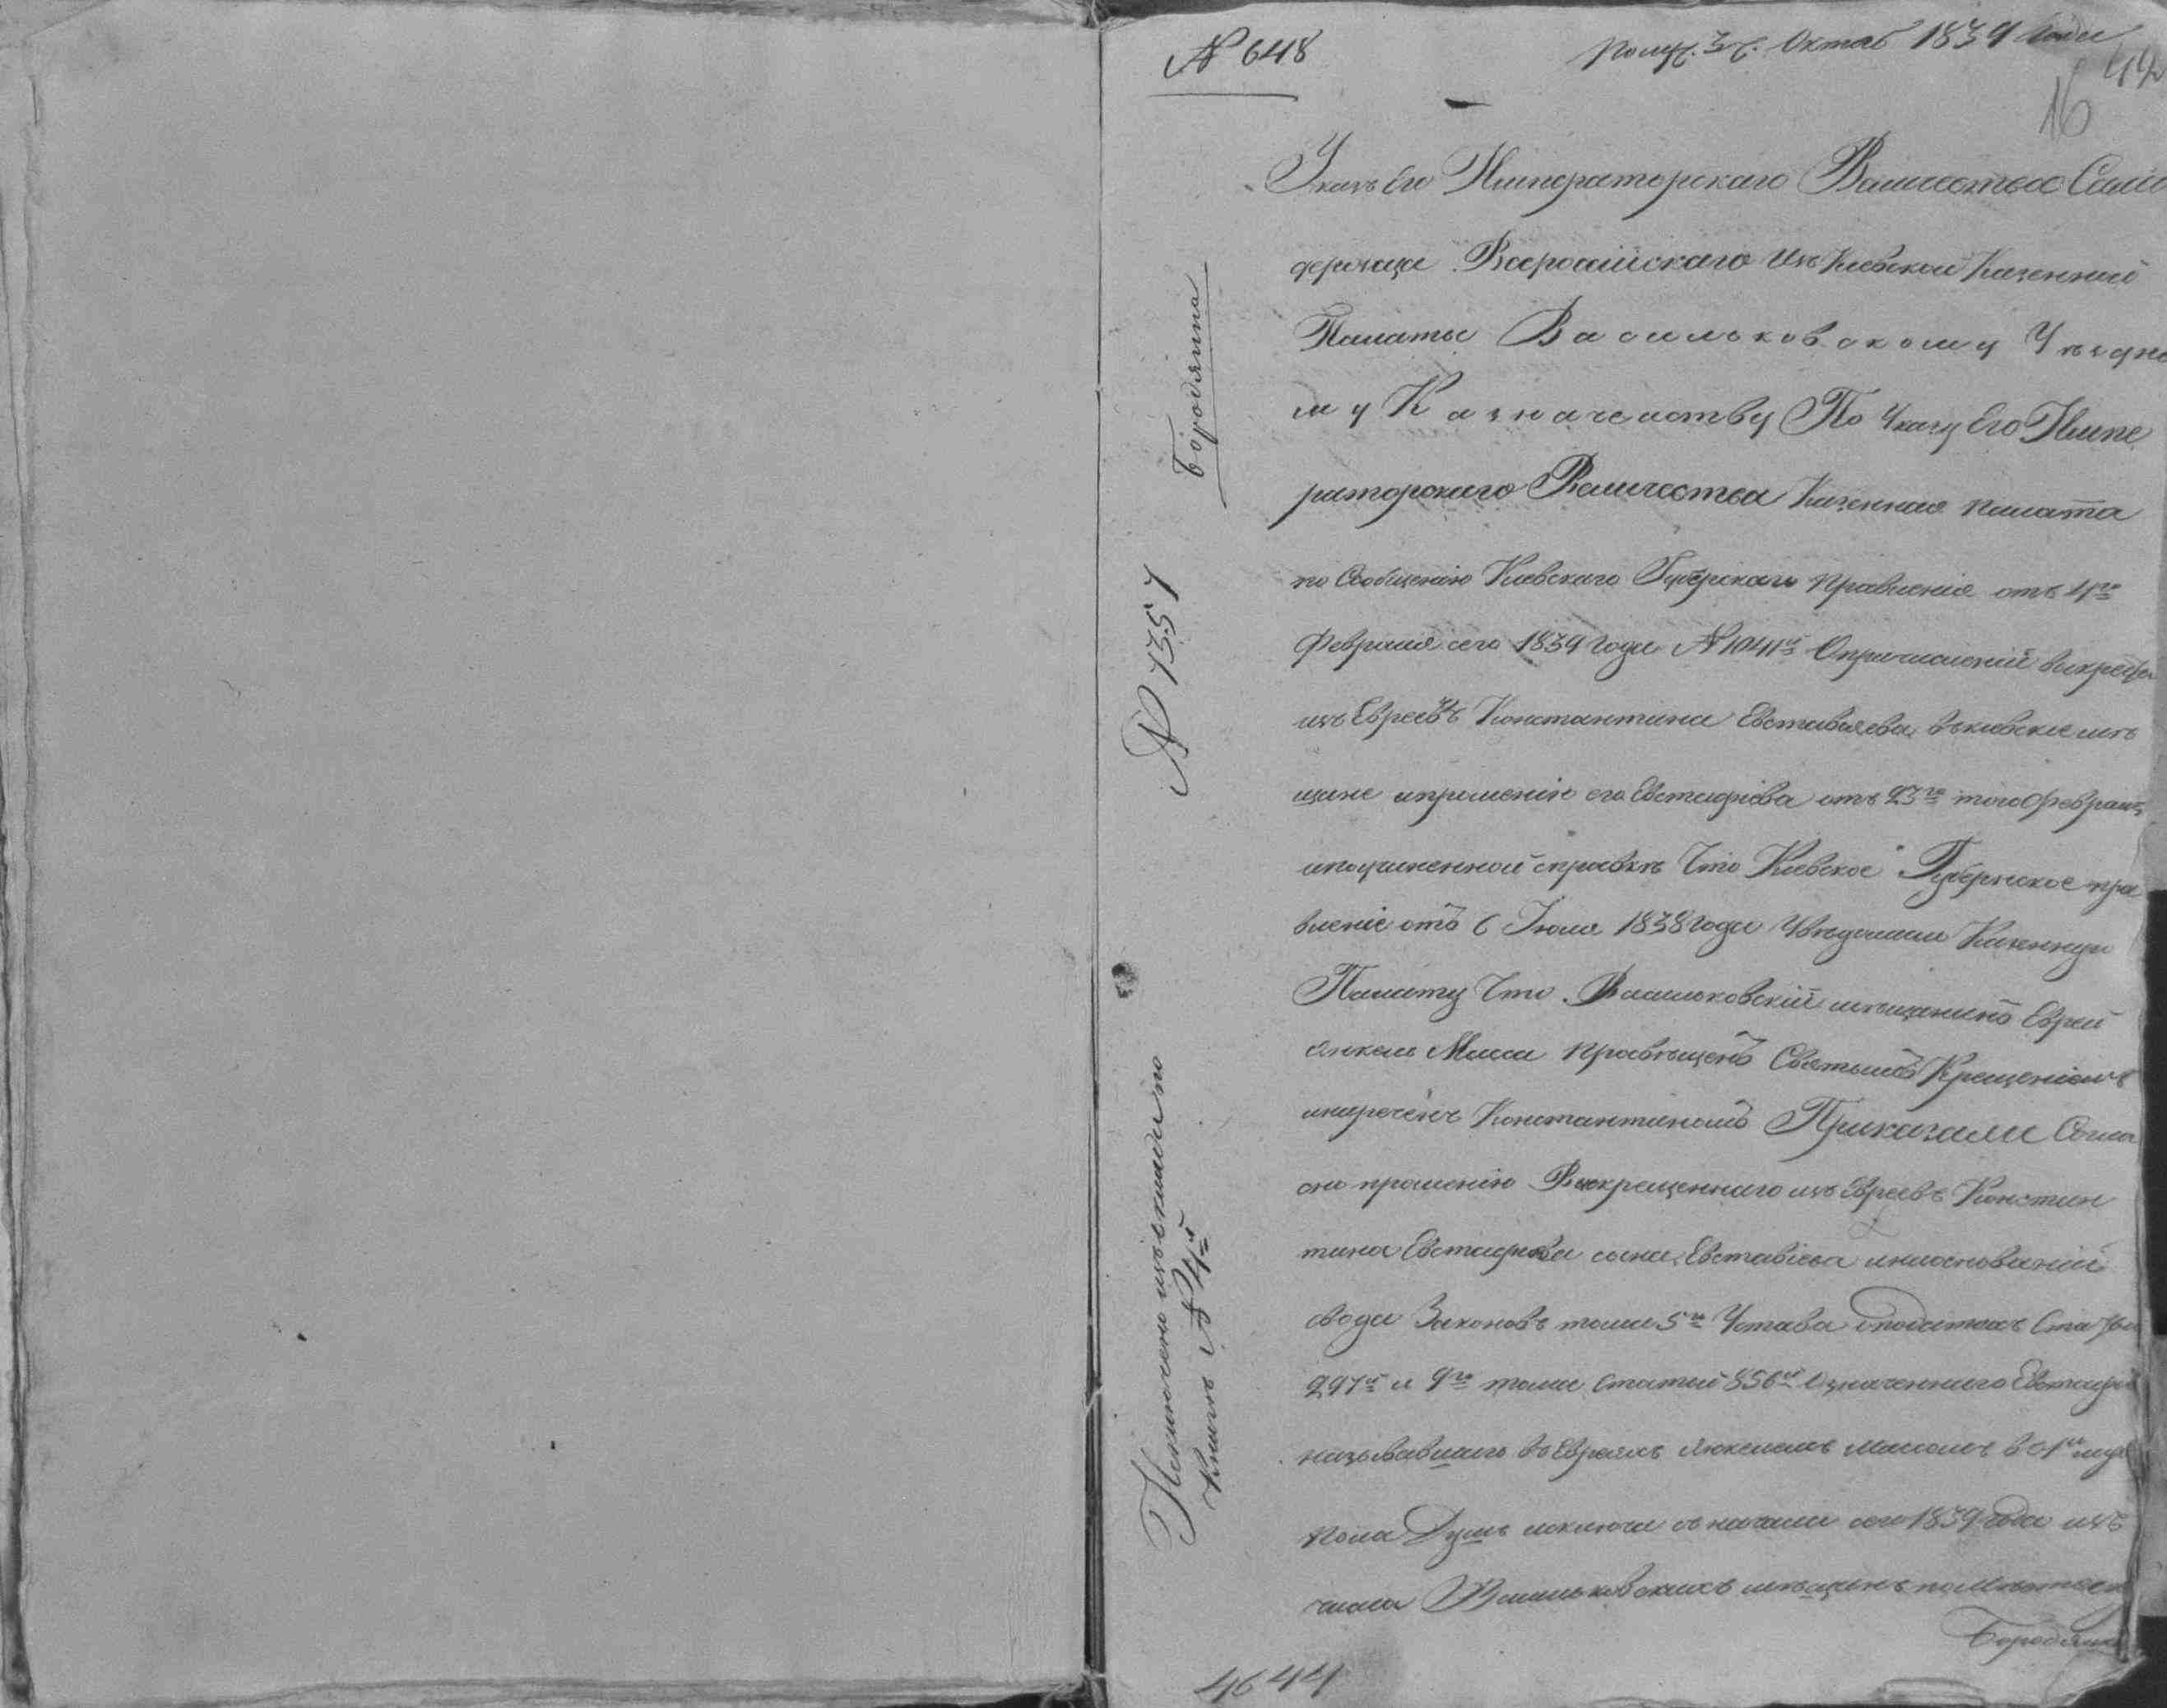 № 648
Получ. 3 ч. Октяб 1839 Года
42
16
Указъ Его Императорскаго Величества Само
держца Всеросiйскаго изъ Кiевской Казенной
Палаты Васильковскому Уѣздно
му Казначейству По Указу Его Импе
раторскаго Величества Казенная Палата
по Сообщенiю Кiевскаго Губерскаго Правленiя отъ 4го
Февраля сего 1839 года № 1041й О причисленiи выкреста
изъ Евреевъ Константина Евставiева въ кiевскiе мѣ
щане и прошенiю его Евстафiева отъ 23го того Февраля
и по учиненной справкѣ Что Кiевское Губернское пра
вленiе отъ 6 Iюля 1838 года Увѣдомили Казенную
Палату Что Васильковскiй мѣщанинъ Еврей
Янкель Масса просвѣщенъ Святымъ Крещенiемъ
и нареченъ Константиномъ Приказали Согла
сно прошенiю Выкрещеннаго изъ Евреевъ Констан
тина Евстафiева сына Евставiева и на основанiи
свода Законовъ тома 5го Устава о податяхъ Ста
297й и 9го тома Статьи 856й Означеннаго Евстафi
называвшаго въ Евреяхъ Янкелемъ Массомъ въ 1й муж
пола Душѣ исключа съ начала сего 1839 года изъ
числа Васильковскихъ мѣщанъ по Мѣстечк
Бородянк
4644
Бородянка
№ 1357
Исключено изъ оклада по
Книгѣ № 4й